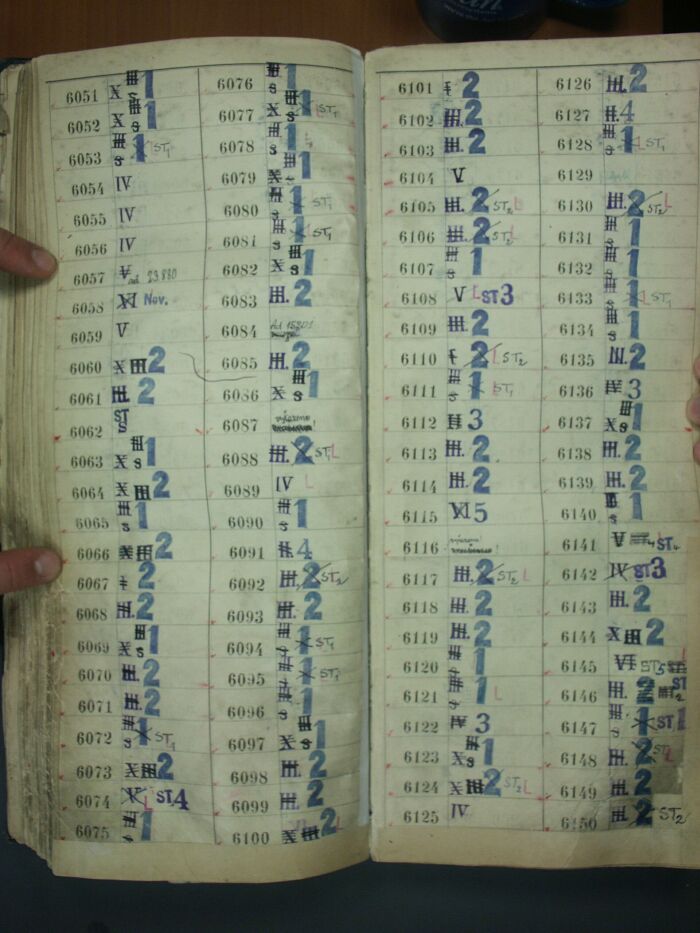 6051 X III S 1
6052 X III S 1
6053 III S 1 ST1
6054 IV
6055 IV
6056 IV
6057 V ad 23880
6058 XI Nov.
6059 V
6060 X III 2
6061 III. 2
6062 ST S
6063 X III S 1
6064 X III 2
6065 III S 1
6066 X III 2
6067 I 2
6068 III. 2
6069 X III S 1
6070 III. 2
6071 III. 2
6072 III S 1 X ST1
6073 X III 2
6074 V L ST4
6075 III S 1
6076 III S 1
6077 X III S 1 ST1
6078 III S 1 L
6079 X III S 1
6080 III S 1 X ST1
6081 III S 1 X L ST1
6082 X III S 1
6083 III. 2
6084 Ad 15201
6085 III. 2
6086 X III S 1
6087
6088 III. 2 ST1 L
6089 IV L
6090 III S 1
6091 II. 4
6092 III. 2 ST2
6093 III. 2
6094 III S 1 X ST1
6095 III S 1 X ST1
6096 III S 1
6097 X III S 1
6098 III. 2
6099 III. 2
6100 X III 2 L
6101 I 2
6102 III. 2
6103 III. 2
6104 V.
6105 III. 2 ST2 L
6106 III. 2 ST2 L
6107 III S 1
6108 V L ST3
6109 III. 2
6110 I 2 L ST2
6111 III S 1 L ST1
6112 II 3
6113 III. 2
6114 III. 2
6115 VI 5
6116
6117 III. 2 ST2 L
6118 III. 2
6119 III. 2
6120 III S 1
6121 III S 1 L
6122 IV 3
6123 X III S 1
6124 X III 2 ST2 L
6125 IV
6126 III. 2
6127 II. 4
6128 III S 1 X L ST1
6129
6130 III. 2 ST2 L
6131 III S 1
6132 III S 1
6133 III S 1 X L ST1
6134 III S 1
6135 III. 2
6136 IV 3
6137 X III S 1
6138 III. 2
6139 III. 2
6140 III S 1
6141 V ST4
6142 IV ST3
6143 III. 2
6144 X III 2
6145 VI ST5
6146 III. 2 III ST2
6147 III S 1 X ST 1
6148 III. 2 ST2 L
6149 III. 2
6150 III. 2 ST2